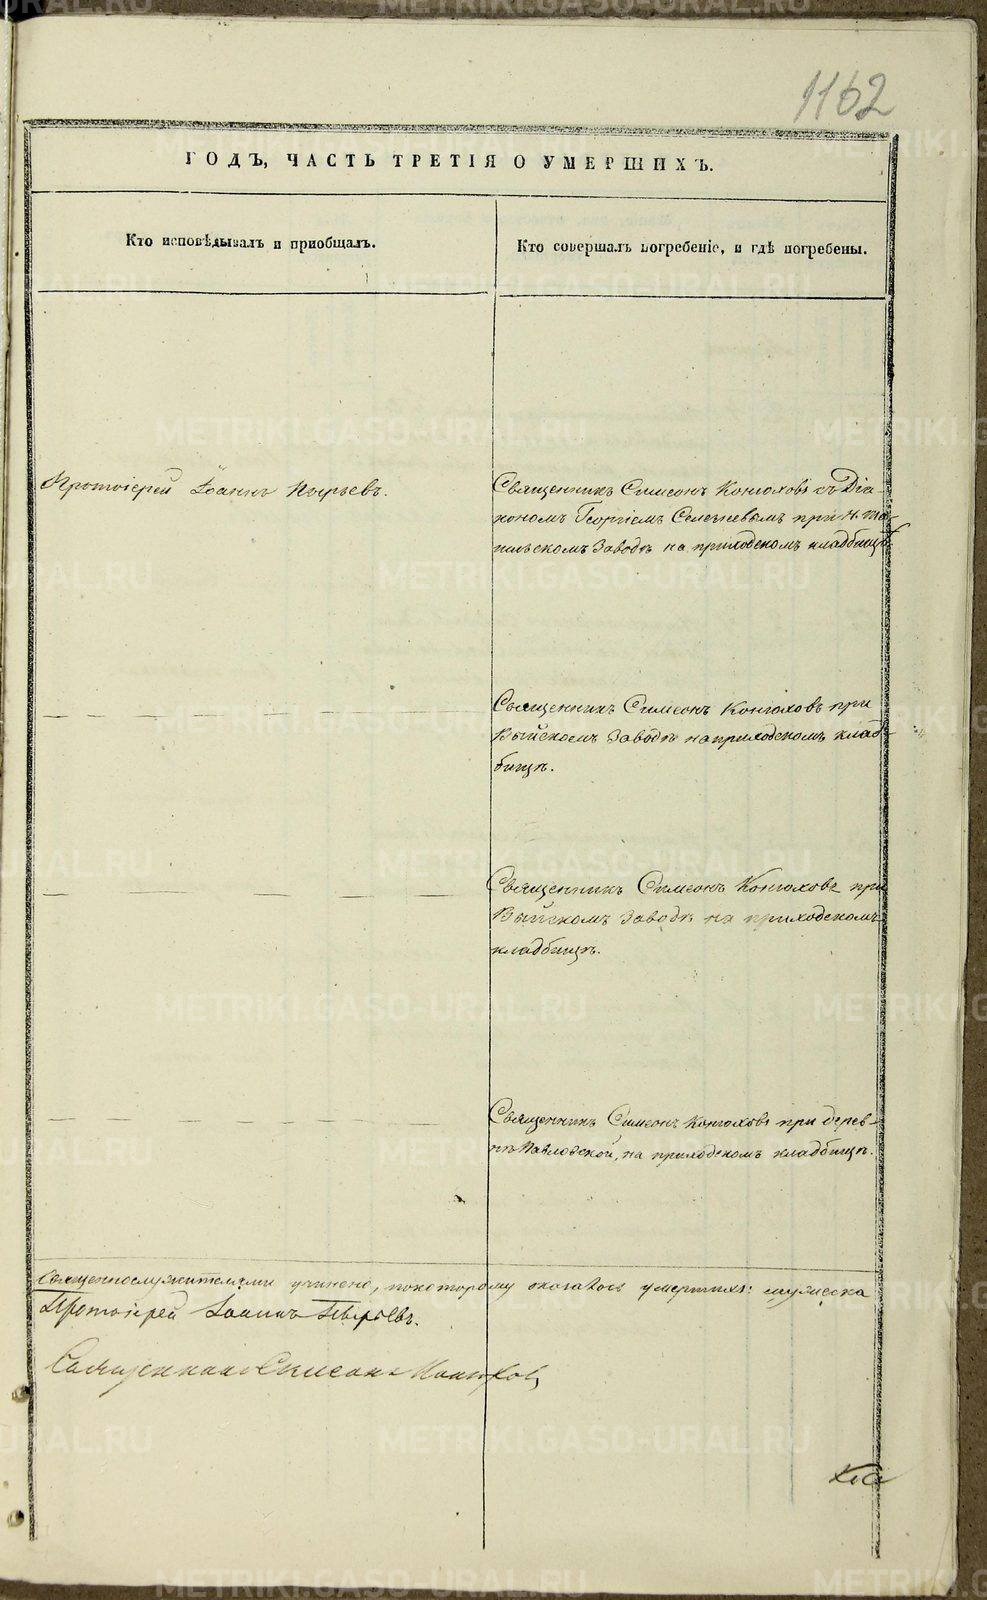 1162
ГОДЪ, ЧАСТЬ ТРЕТІЯ О УМЕРШИХЪ.
Кто исповѣдывалъ и пріобщалъ.
Кто совершалъ погребеніе, и гдѣ погребены.
Протоіерей Іоаннъ Пырьевъ.
Священникъ Симеонъ Конюховъ съ Діа-
кономъ Георгіемъ Селезневымъ при Н. Та-
гильскомъ Заводѣ на приходскомъ кладбищѣ
Священникъ Симеонъ Конюховъ при
Выйскомъ Заводѣ на приходскомъ клад-
бищѣ.
Священникъ Симеонъ Конюховъ при
Выйскомъ Заводѣ на приходскомъ
кладбищѣ.
Священникъ Симеонъ Конюховъ при дерев-
нѣ Павловской, на приходскомъ кладбищѣ.
Священнослужителями учинено, по которому оказалось умершихъ: мужеска
Протоіерей Іоаннъ Пырьевъ.
Священникъ Симеонъ Конюховъ
METRIKI.GASO-URAL.RU